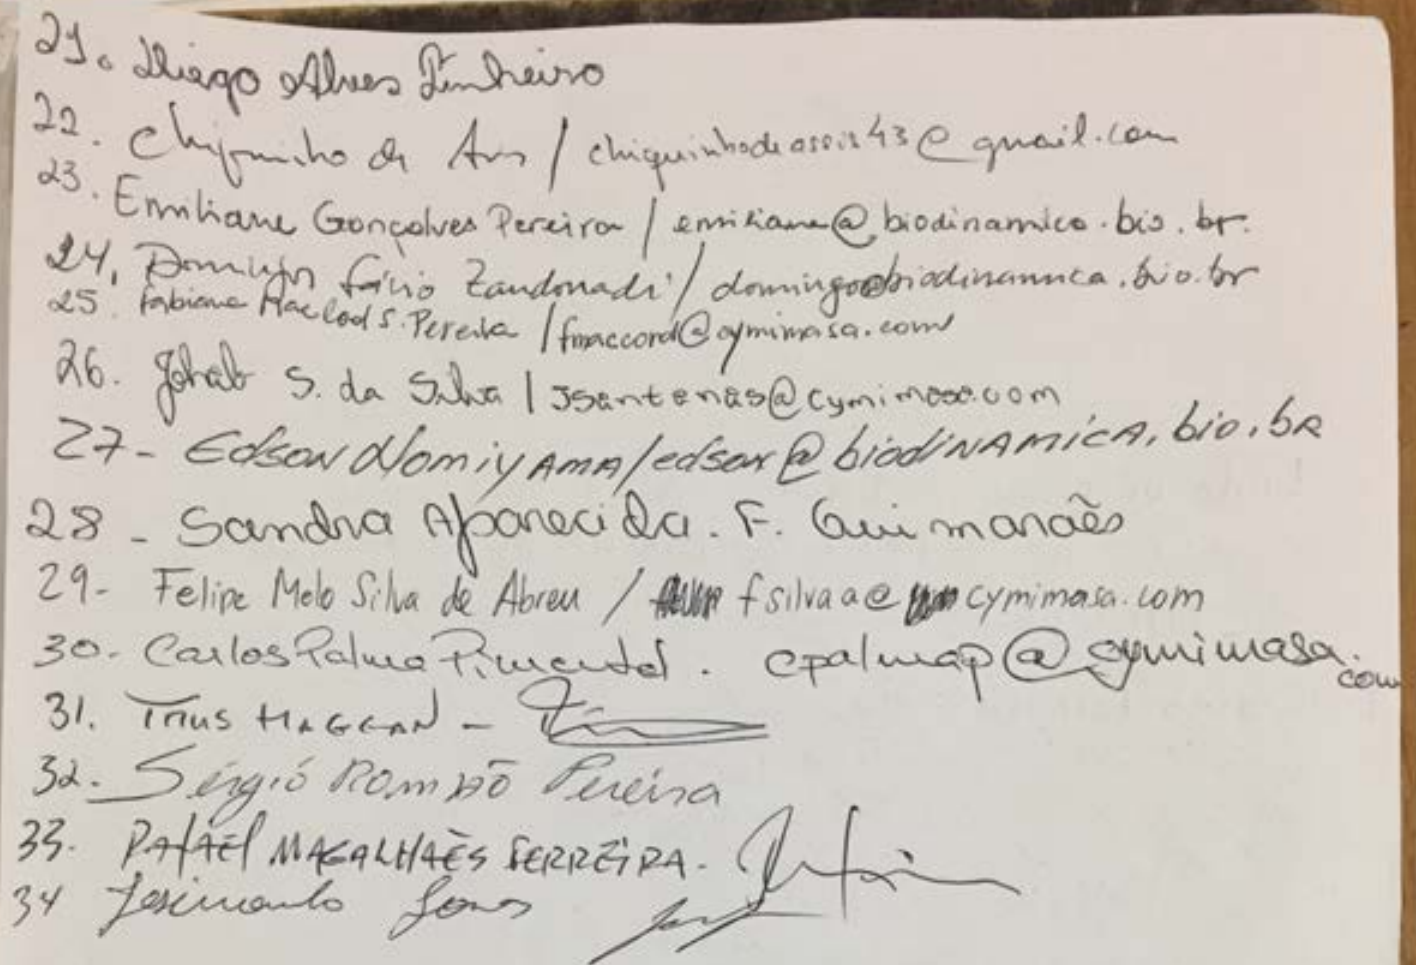 21. Thiago Alves Pinheiro
22. Chiquinho de Assis / chiquinhodeassis43@gmail.com
23. Emiliane Gonçalves Pereira / emiliane@biodinamica.bio.br.
24. Domingos Zandonadi / domingos@biodinamica.bio.br
25. Fabiane S. Pereira / fmaccord@cymimasa.com
26. S. da Silva / Jsantenas@cymimasa.com
27- Edson Nomiyama/edson@biodinAmicA.bio.bR
28 - Sandra Aparecida. F. Guimarães
29- Felipe Melo Silva de Abreu / fsilvaa@cymimasa.com
30. Carlos Palma Pimentel. cpalmap@cymimasa.com
31. -
32. Sérgio Romão Pereira
33. RAfAEl MAGALHAES FERREIRA.
34